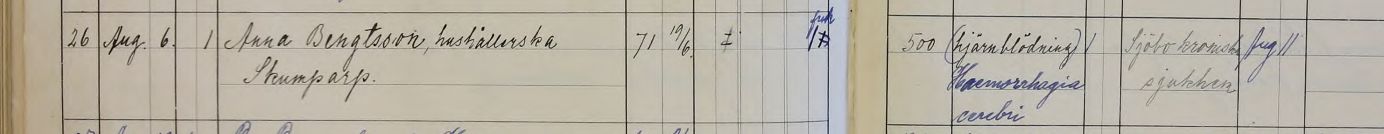 26 Aug. 6. 1 Anna Bengtsson, hushållerska 71 19/6 500 (hjärnblödning) 1 Sjöbo kroniska Aug 11
Skumparp. Haemorrhagia sjukhem
cerebri